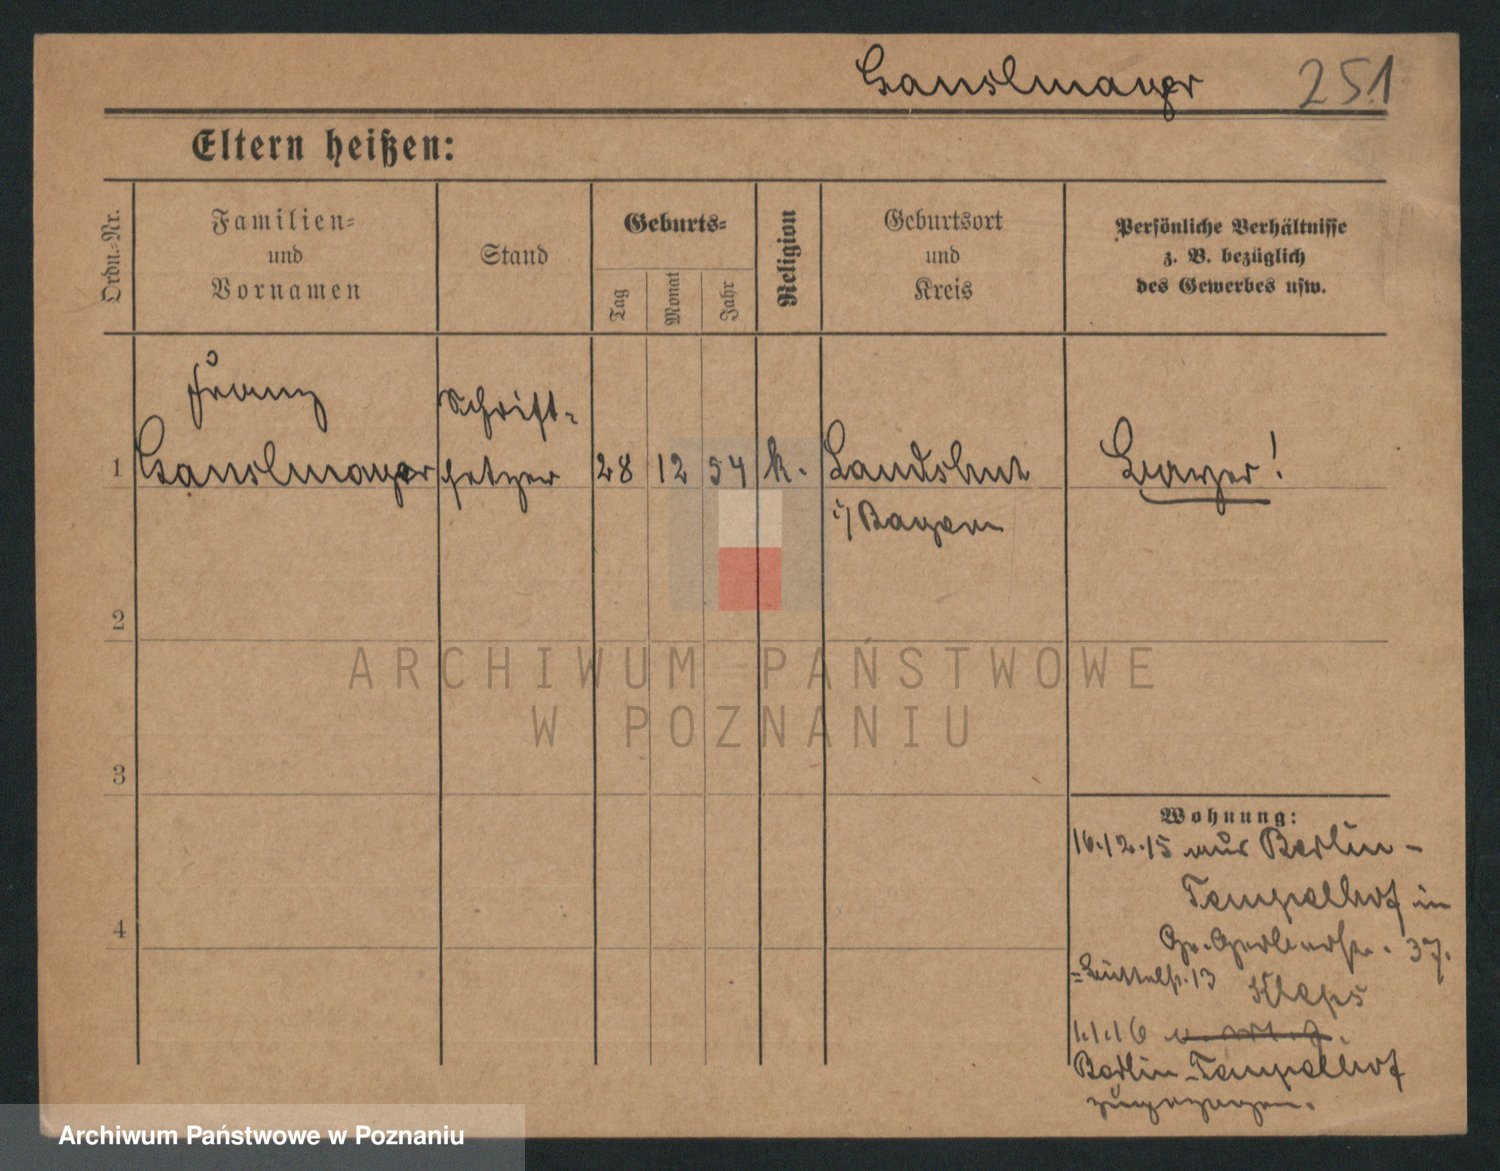 Ganslmayer 251
Eltern heißen:
Ordn.-Nr.
Familien-
und
Vornamen
Stand
Geburts-
Tag
Monat
Jahr
Religion
Geburtsort
und
Kreis
Persönliche Verhältnisse
z. B. bezüglich
des Gewerbes usw.
Franz
Schrift-
1 Ganslmayer setzer 28 12 54 k. Landshut
i/ Bayern
2
ARCHIWUM PAŃSTWOWE
W POZNANIU
3
Wohnung:
16.12.15 aus Berlin-
Tempelhof in
4
Gr. Gerberstr. 37.
13
1.1.16
Berlin-Tempelhof
Archiwum Państwowe w Poznaniu